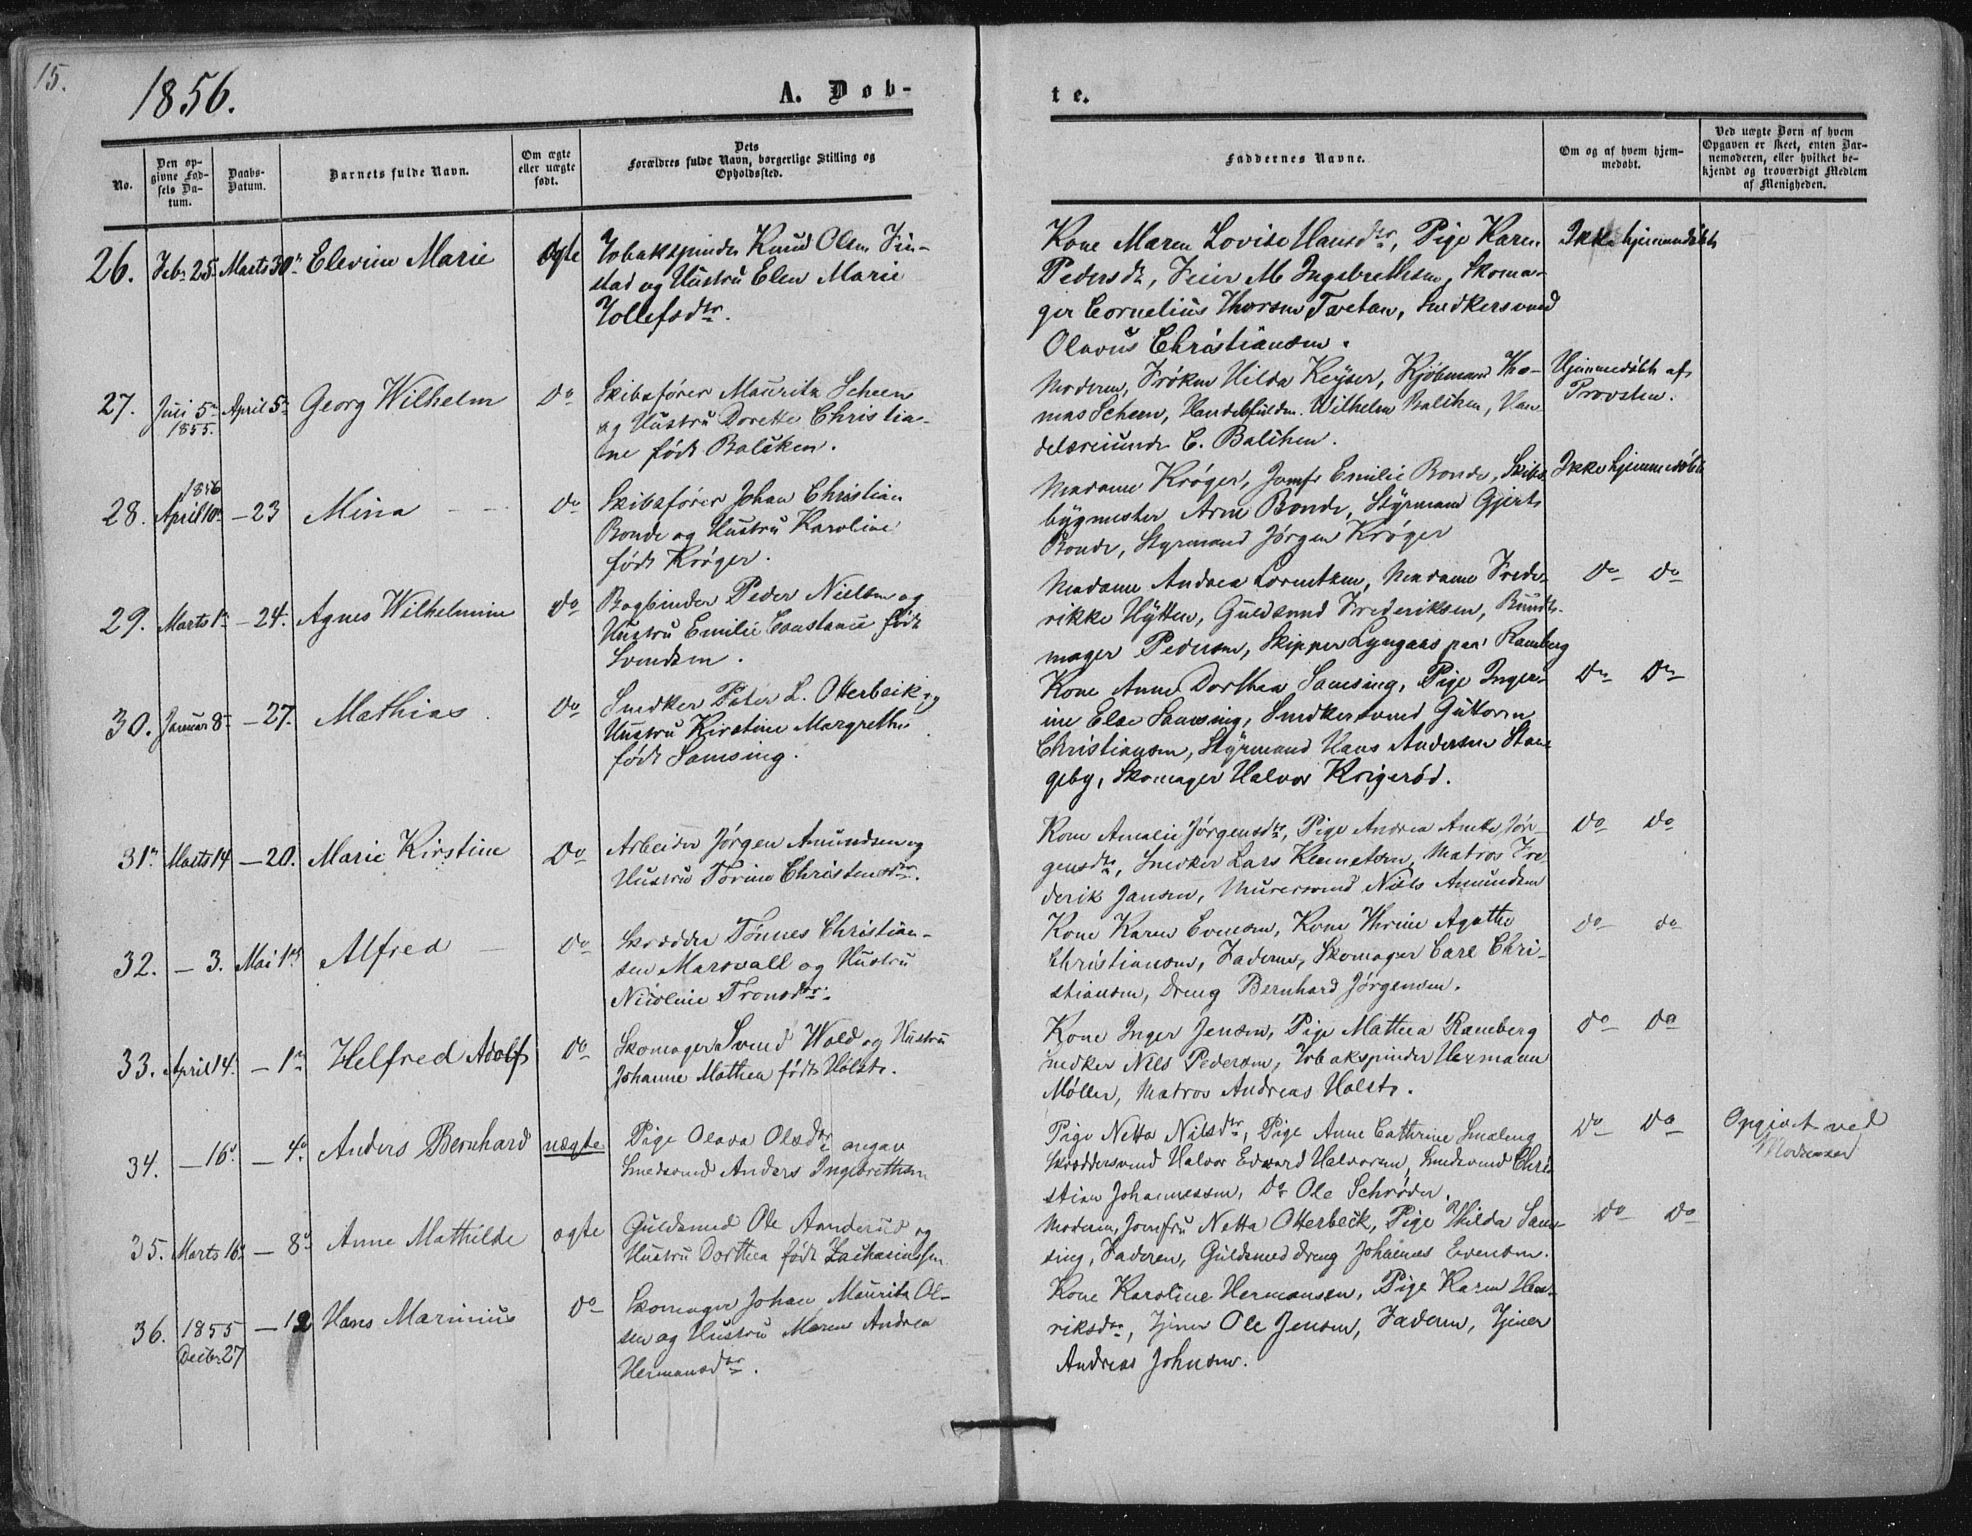 15.
1856.
A. Døb-
te.
No.
Den op-
givne Fød-
sels Da-
tum.
Daabs-
Datum.
Barnets fulde Navn.
Om ægte
eller uægte
født.
Dets
Forældres fulde Navn, borgerlige Stilling og
Opholdssted.
Faddernes Navne.
Om og af hvem hjem-
medøbt.
Ved uægte Børn af hvem
Opgaven er skeet, enten Bar-
nemoderen, eller hvilket be-
kjendt og troværdigt Medlem
af Menigheden.
26. Febr 25. Marts 30 Elevine Marie ægte Tobakspinder Knud Olsen Fin-
stad og Hustru Elen Marie
Tollefsdtr.
Kone Maren Lovise Hansdtr, Pige Karen
Pedersdtr, Feier M Ingebrethsen, Skoma-
ger Cornelius Thorsen Tvetan, Snedkersvend
Olavus Christiansen.
Ikke hjemmedøbt
27. Juni 5 1855. April 5 Georg Wilhelm do Skibsfører Mauritz Scheen
og Hustru Dorette Christia-
ne født Balchen.
Moderen, Frøken Hilda Keyser, Kjøbmand Tho-
mas Scheen, Handelsfuldm. Wilhelm Balchen, Han
delsreisende C. Balchen.
Hjemmedøbt af
Provsten.
28. 1856 April 10 – 23 Mina do Skibsfører Johan Christian
Bonde og Hustru Karoline
født Krøger.
Madame Krøger, Jomfr Emilie Bonde, Skibs
bygmester Arne Bonde, Styrmand Gjert
Bonde, Styrmand Jørgen Krøger
Ikke hjemmedøbt
29. Marts 1 – 24. Agnes Wilhelmine do Bogbinder Peder Nielsen og
Hustru Emilie Constance født
Svendsen.
Madame Andrea Lorentzen, Madame Frede-
rikke Hytten, Guldsmed Frederiksen, Bundt-
mager Pedersen, Skipper Lyngaas paa Ramberg
do do
30. Januar 8 – 27. Mathias do Snedker Peter L. Otterbeck og
Hustru Kirstine Margrethe
født Samsing.
Kone Anne Dorthea Samsing, Pige Inger-
ine Else Samsing, Snedkersvend Guttorm
Christiansen, Styrmand Hans Andersen Stan
geby, Skomager Halvor Krigerød.
do do
31 Marts 14 – 20. Marie Kirstine do Arbeider Jørgen Amundsen og
Hustru Torine Christensdtr.
Kone Amalie Jørgensdtr, Pige Andrea Jør-
gensdtr, Snedker Lars Klemetsen, Matros Fre-
derik Jansen, Murersvend Niels Amundsen
do do
32. – 3. Mai 1 Alfred do Skrædder Tønnes Christian-
sen Marsvall og Hustru
Nicoline Tronsdtr.
Kone Karen Evensen, Kone Thrine Agathe
Christiansen, Faderen, Skomager Carl Chri-
stiansen, Dreng Bernhard Jørgensen.
do do
33. April 14. – 1 Helfred Adolf do Skomager Svend Wold og Hustru
Johanne Mathea født Holst.
Kone Inger Jensen, Pige Mathea Ramberg
Snedker Nils Pedersen, Tobakspinder Hermann
Møller, Matros Andreas Holst.
do do
34. – 16 – 4 Anders Bernhard uægte Pige Olava Olsdtr angav
Smedsvend Anders Ingebrethsen
Pige Netta Nilsdtr, Pige Anne Cathrine Smaleng
Skræddersvend Halvor Edvard Halvorsen, Smedsvend Chri
stian Johannessen, do Ole Schrøder.
do do
Opgivet ved
Moderen
35. Marts 16 – 8 Anne Mathilde ægte Guldsmed Ole Aanderud og
Hustru Dorthea født Zachariassen
Moderen, Jomfru Netta Otterbeck, Pige Hilda Sam
sing, Faderen, Guldsmeddreng Johannes Evensen.
do do
36. 1855 Decbr 27 – 12 Hans Marinius do Skomager Johan Mauritz Ol-
sen og Hustru Maren Andrea
Hermansdtr.
Kone Karoline Hermansen, Pige Karen Hen-
riksdtr, Tjener Ole Jensen, Faderen, Tjener
Andreas Johnsen.